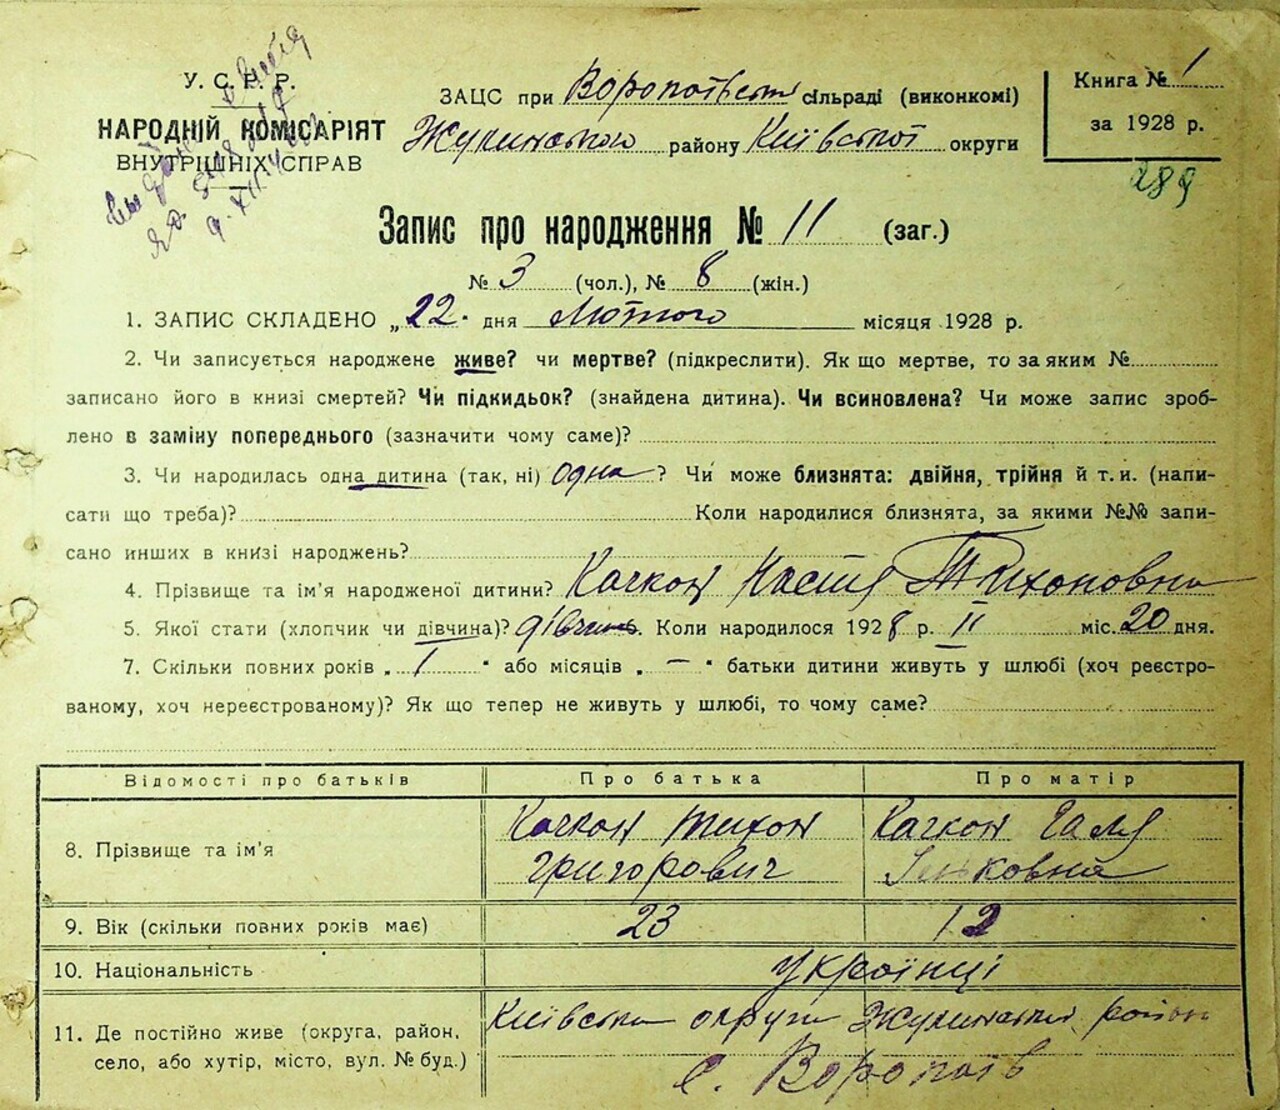 У. С. Р. Р.
НАРОДНІЙ КОМІСАРІЯТ
ВНУТРІШНІХ СПРАВ
ЗАЦС при Воропаївськ сільраді (виконкомі)
Жукинського району Київської округи
Книга № 1
за 1928 р.
289
Запис про народження № 11 (заг.)
№ 3 (чол.), № 8 (жін.)
1. ЗАПИС СКЛАДЕНО „22" дня Лютого місяця 1928 р.
2. Чи записується народжене живе? чи мертве? (підкреслити). Як що мертве, то за яким №
записано його в книзі смертей? Чи підкидьок? (знайдена дитина). Чи всиновлена? Чи може запис зроб-
лено в заміну попереднього (зазначити чому саме)?
3. Чи народилась одна дитина (так, ні) одна? Чи може близнята: двійня, трійня й т. и. (напи-
сати що треба)? Коли народилися близнята, за якими №№ запи-
сано инших в книзі народжень?
4. Прізвище та ім'я народженої дитини? Качкон Настя Тихоновна
5. Якої стати (хлопчик чи дівчина)? дівчин. Коли народилося 1928 р. II міс. 20 дня.
7. Скільки повних років „ 1 " або місяців „ — " батьки дитини живуть у шлюбі (хоч реєстро-
ваному, хоч нереєстрованому)? Як що тепер не живуть у шлюбі, то чому саме?
Відомості про батьків Про батька Про матір
8. Прізвище та ім'я Качкон Тихон Григорович Качкон Галя Ільковна
9. Вік (скільки повних років має) 23
10. Національність Українці
11. Де постійно живе (округа, район,
село, або хутір, місто, вул. № буд.) Київська округи Жукинський район
с. Воропаїв